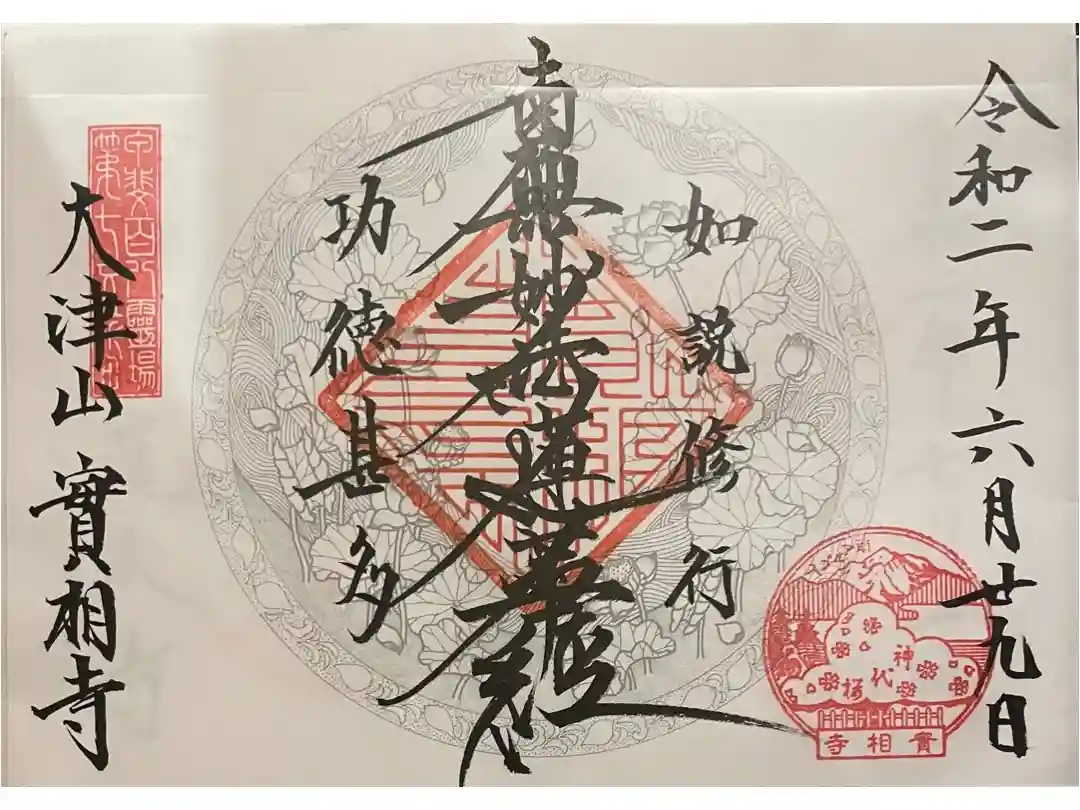 令和二年六月廿九日
如説修行
南無妙法蓮華経
功徳甚多
大津山 實相寺
甲斐百八霊場
神代桜
實相寺